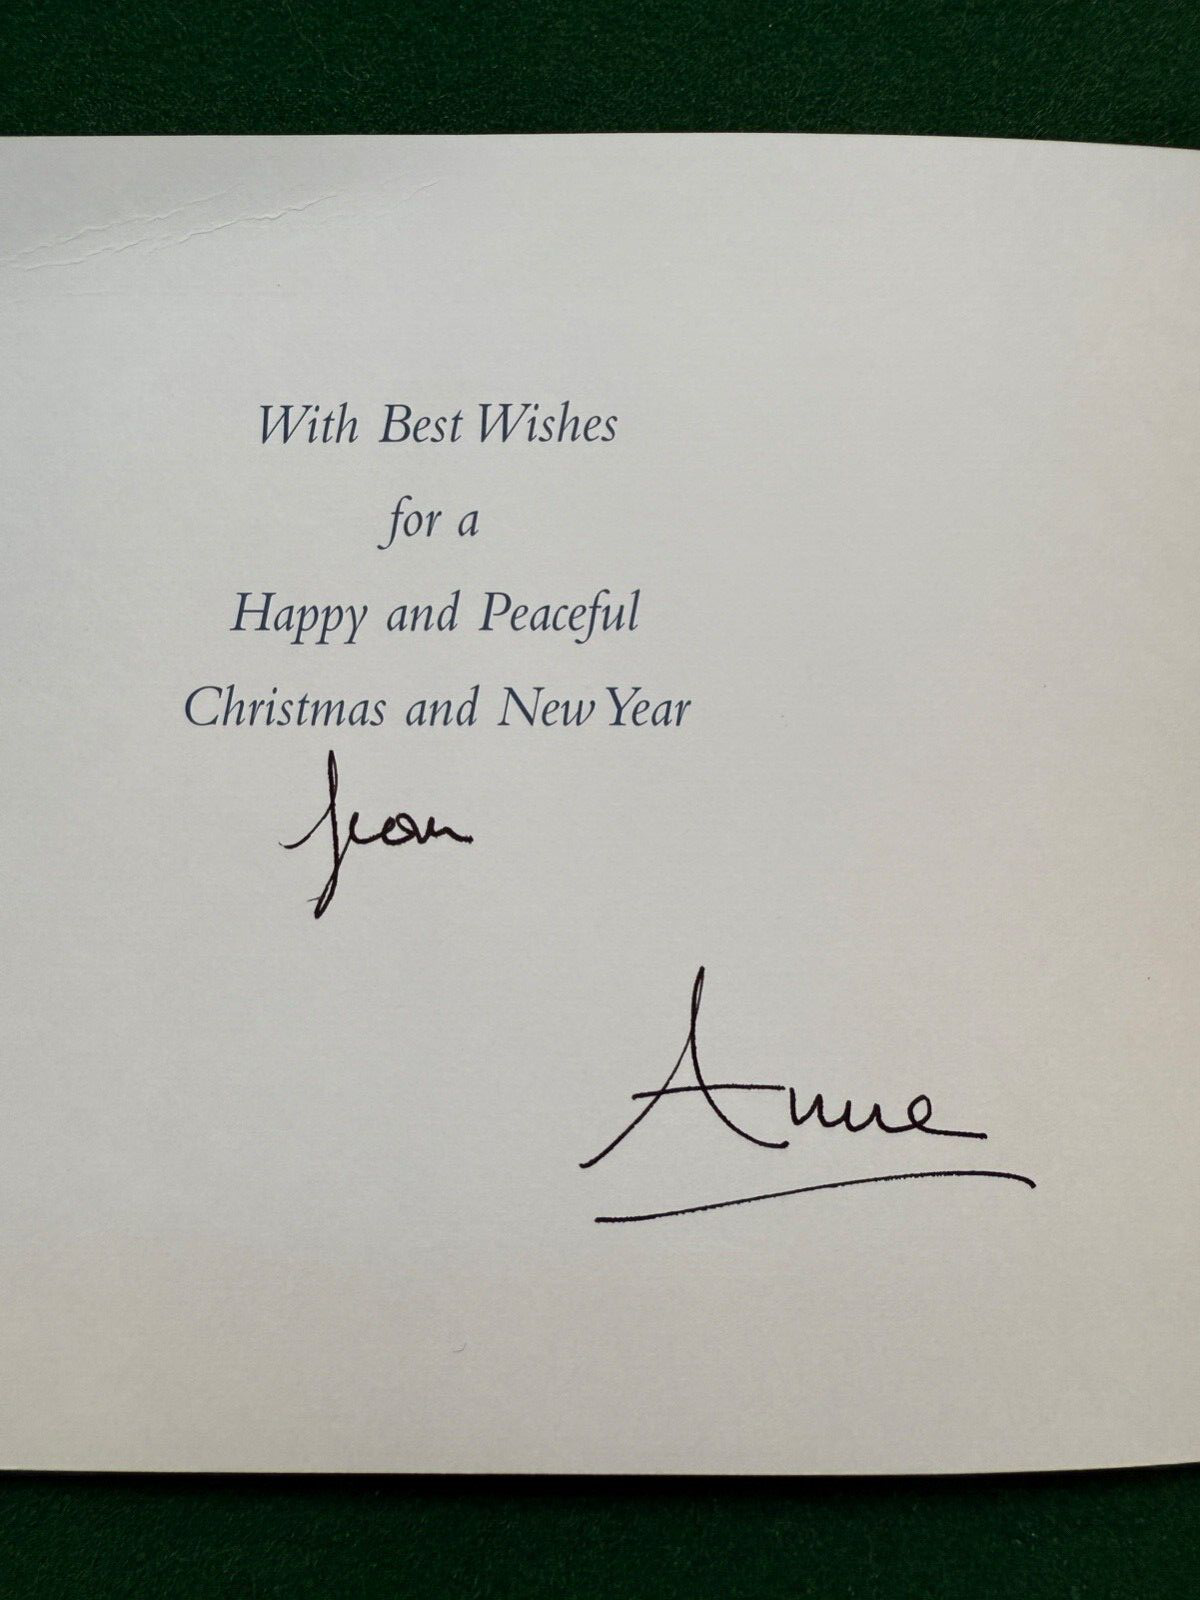 With Best Wishes
for a
Happy and Peaceful
Christmas and New Year
from
Anne